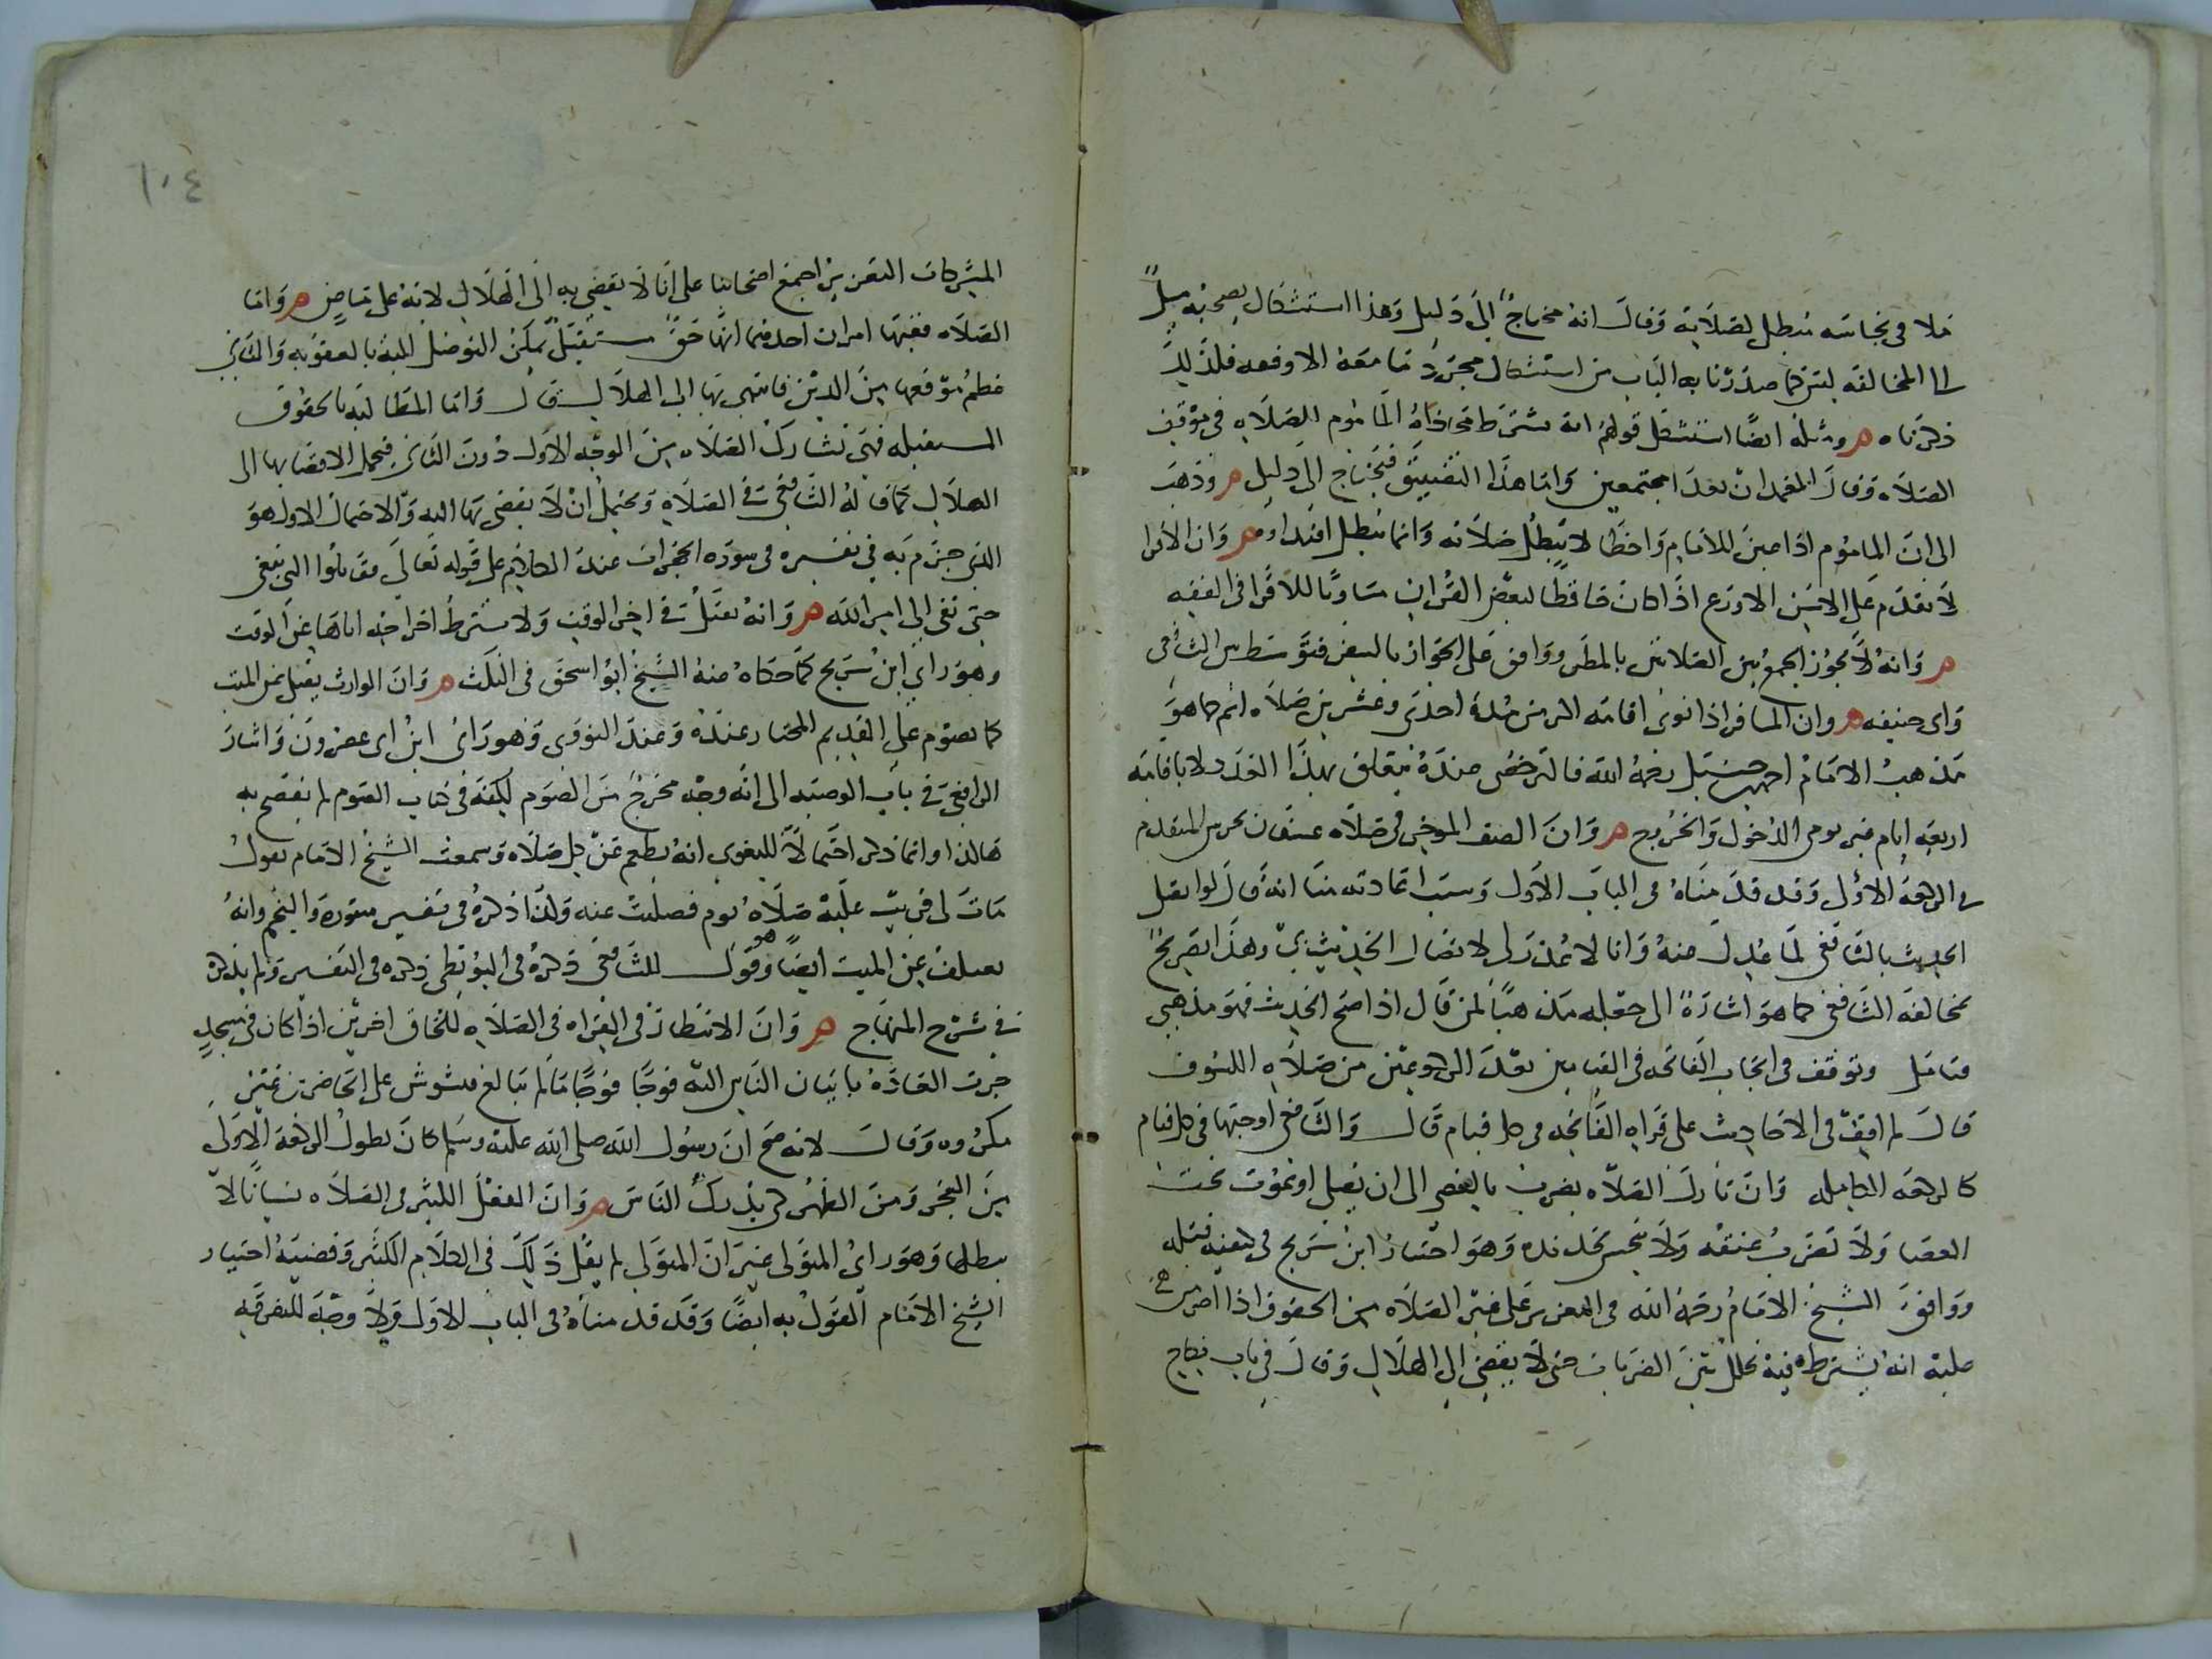 ملاقى نجاسه تبطل لصلاته وقال انه محتاج الى دليل وهذا استشكال يصحبه ميل
الى المخالفه ليس كما صدرنا به الباب من استشكال مجرد ما معه الا وقفه فلذلك
ذكرناه ه ومثله ايضا استشكل قولهم انه يشترط محاذاه الماموم للصلاه في موقف
الصلاه وقال المعهد ان يعدا مجتمعين واما هذا التضييق فيحتاج الى دليل ه وذهب
الى ان الماموم اذا عين الامام واخطا لا تبطل صلاته وانما تبطل اقتداوه ه وان الاقرا
لا يقدم على الاسن الاورع اذا كان حافظا لبعض القران مساويا للاقرا في الفقه
ه وانه لا يجوز الجمع بين الصلاتين بالمطر ووافق على الجواز بالسفر فتوسط بين الشافعي
وابي حنيفه ه وان المسافر اذا نوى اقامه اكثر من مده احدى وعشرين صلاه اتم كما هو
مذهب الامام احمد بن حنبل رحمه الله فالترخص عنده يتعلق بهذا العدد لا باقامه
اربعه ايام غير يومى الدخول والخروج ه وان الصف الموخر في صلاه عسفان يحرس المتقدم
في الركعه الاولى وقد قدمناه في الباب الاول وسبب اعادته هنا انه قال لو لم يقل
الحديث بالشافعى لما عدل عنه وانا لا عذر لى لاتصال الحديث بى وهذا تصريح
بمخالفه الشافعى كما هو اشاره الى جعله مذهبا لمن قال اذا صح الحديث فهو مذهبى
فتامل وتوقف في ايجاب الفاتحه في القيامين بعد الركوعين من صلاه الكسوف
قال لم اقف في الاحاديث على قراه الفاتحه في كل قيام قال والشافعى اوجبها في كل قيام
كالركعه الكامله وان تارك الصلاه يضرب بالعصى الى ان يصلى او يموت تحت
العصا ولا تضرب عنقه ولا ينخس بحديده وهو اختيار ابن سريج في كيفيه قتله
ووافق الشيخ الامام رحمه الله في التعزير على غير الصلاه من الحقوق اذا اصر
عليه انه يشترط فيه تخلل بين الضربات حتى لا يفضى الى الهلاك وقال في باب نكاح
١٠٤
المشركات التعزير اجمع اصحابنا على انا لا نفضى به الى الهلاك لانه على ماض ه واما
الصلاه ففيها امران احدهما انها حق مستقبل يمكن التوصل اليه بالعقوبه والثانى
عظم موقعها من الدين فانتهى بها الى الهلاك قال واما المطالبه بالحقوق
المستقبله فهى تشارك الصلاه من الوجه الاول دون الثانى فيحمل الافضا بها الى
الهلاك كما قاله الشافعى في الصلاه ويحتمل ان لا يفضى بها اليه والاحتمال الاول هو
الذى جزم به في تفسيره في سوره الحجرات عند الكلام على قوله تعالى فقاتلوا التى تبغى
حتى تفى الى امر الله ه وانه يقتل في اخر الوقت ولا يشترط اخراجه اياها عن الوقت
وهو راي ابن سريج كما حكاه عنه الشيخ ابو اسحق في النكت ه وان الوارث يصلى عن الميت
كما يصوم على القديم المختار عنده وعند النووى وهو راى ابن ابى عصرون واشار
الرافعى في باب الوصيه الى انه وجه مخرج من الصوم لكنه في كتاب الصوم لم يفصح به
هاكذا وانما ذكر احتمالا للبغوى انه يطعم عن كل صلاه وسمعت الشيخ الامام يقول
مات لى قريب عليه صلاه يوم فصليت عنه وكذا ذكره في تفسير سوره والنجم وانه
يعتكف عن الميت ايضا وهو قول للشافعى ذكره في البويطى ذكره في التفسير ولم يذكره
في شرح المنهاج ه وان الانتظار في القراه في الصلاه للحاق اخرين اذا كان في مسجد
جرت العاده باتيان الناس اليه فوجا فوجا ما لم يبالغ فيشوش على الحاضرين غير
مكروه وقال لانه صح ان رسول الله صلى الله عليه وسلم كان يطول الركعه الاولى
من الفجر ومن الظهر كى يدرك الناس ه وان الفعل الكثير في الصلاه نسيانا لا
يبطلها وهو راى المتولى غير ان المتولى لم يقل ذلك في الكلام الكثير وقضيه اختيار
الشيخ الامام القول به ايضا وقد قدمناه في الباب الاول ولا وجه للتفرقه